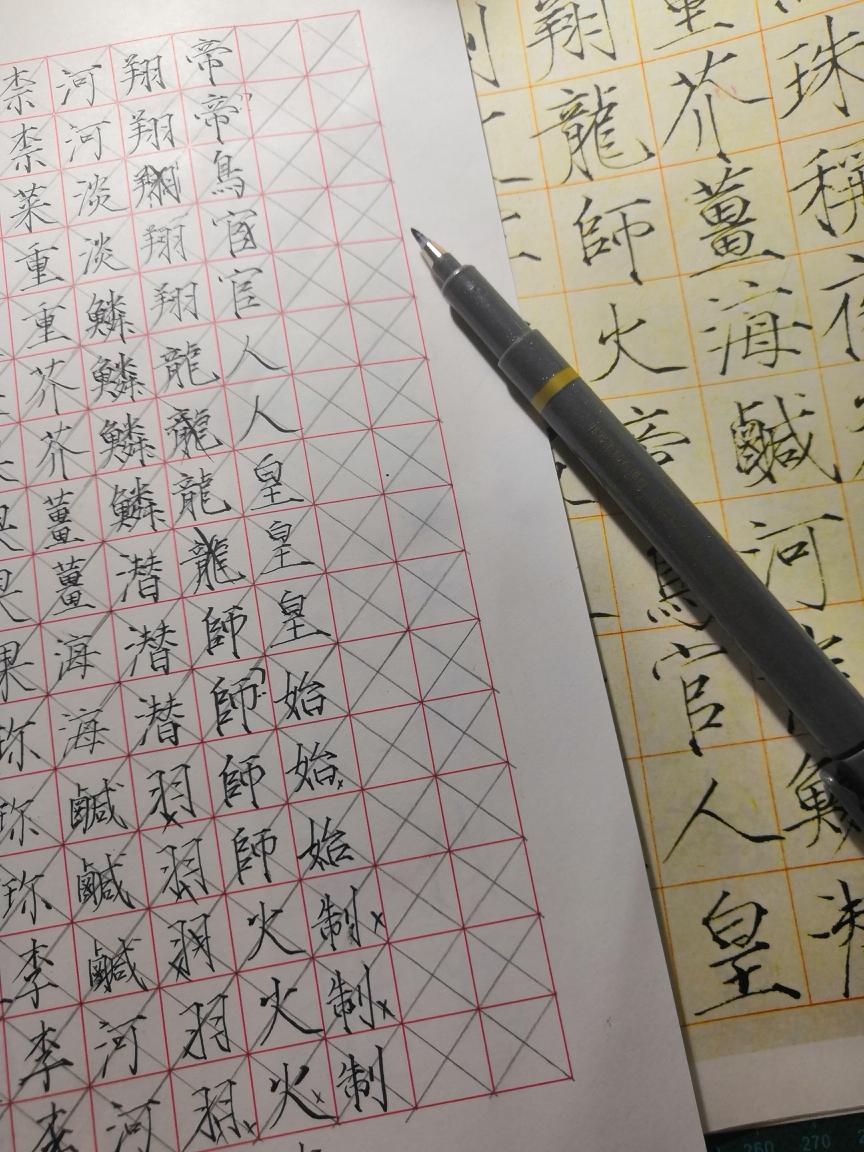 果珎珎珎李李柰
柰柰菜重重芥芥薑薑海海鹹鹹鹹河河
河河淡淡鱗鱗鱗鱗潜潜潜羽羽羽羽羽
翔翔翔翔翔龍龍龍龍師師師師火火火
帝帝鳥官官人人皇皇皇始始始制制制
珠稱夜
重芥薑海鹹河
翔龍師火帝鳥官人皇
260 270